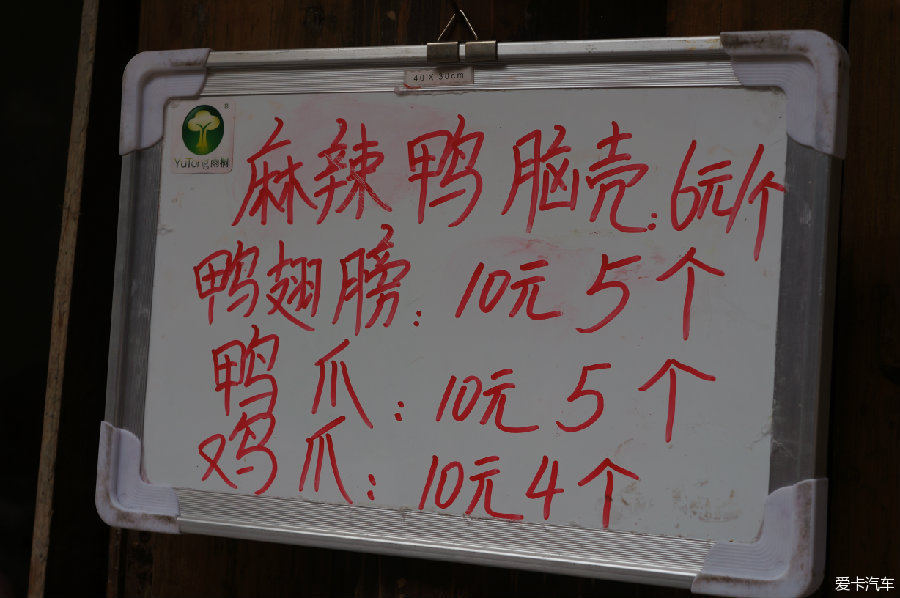 40 X 30cm
YuTong 雨桐
®
麻辣鸭脑壳:6元/个
鸭翅膀:10元5个
鸭爪:10元5个
鸡爪:10元4个
爱卡汽车